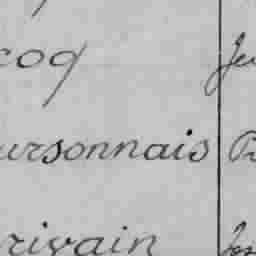 cog
ursonnais
rivain